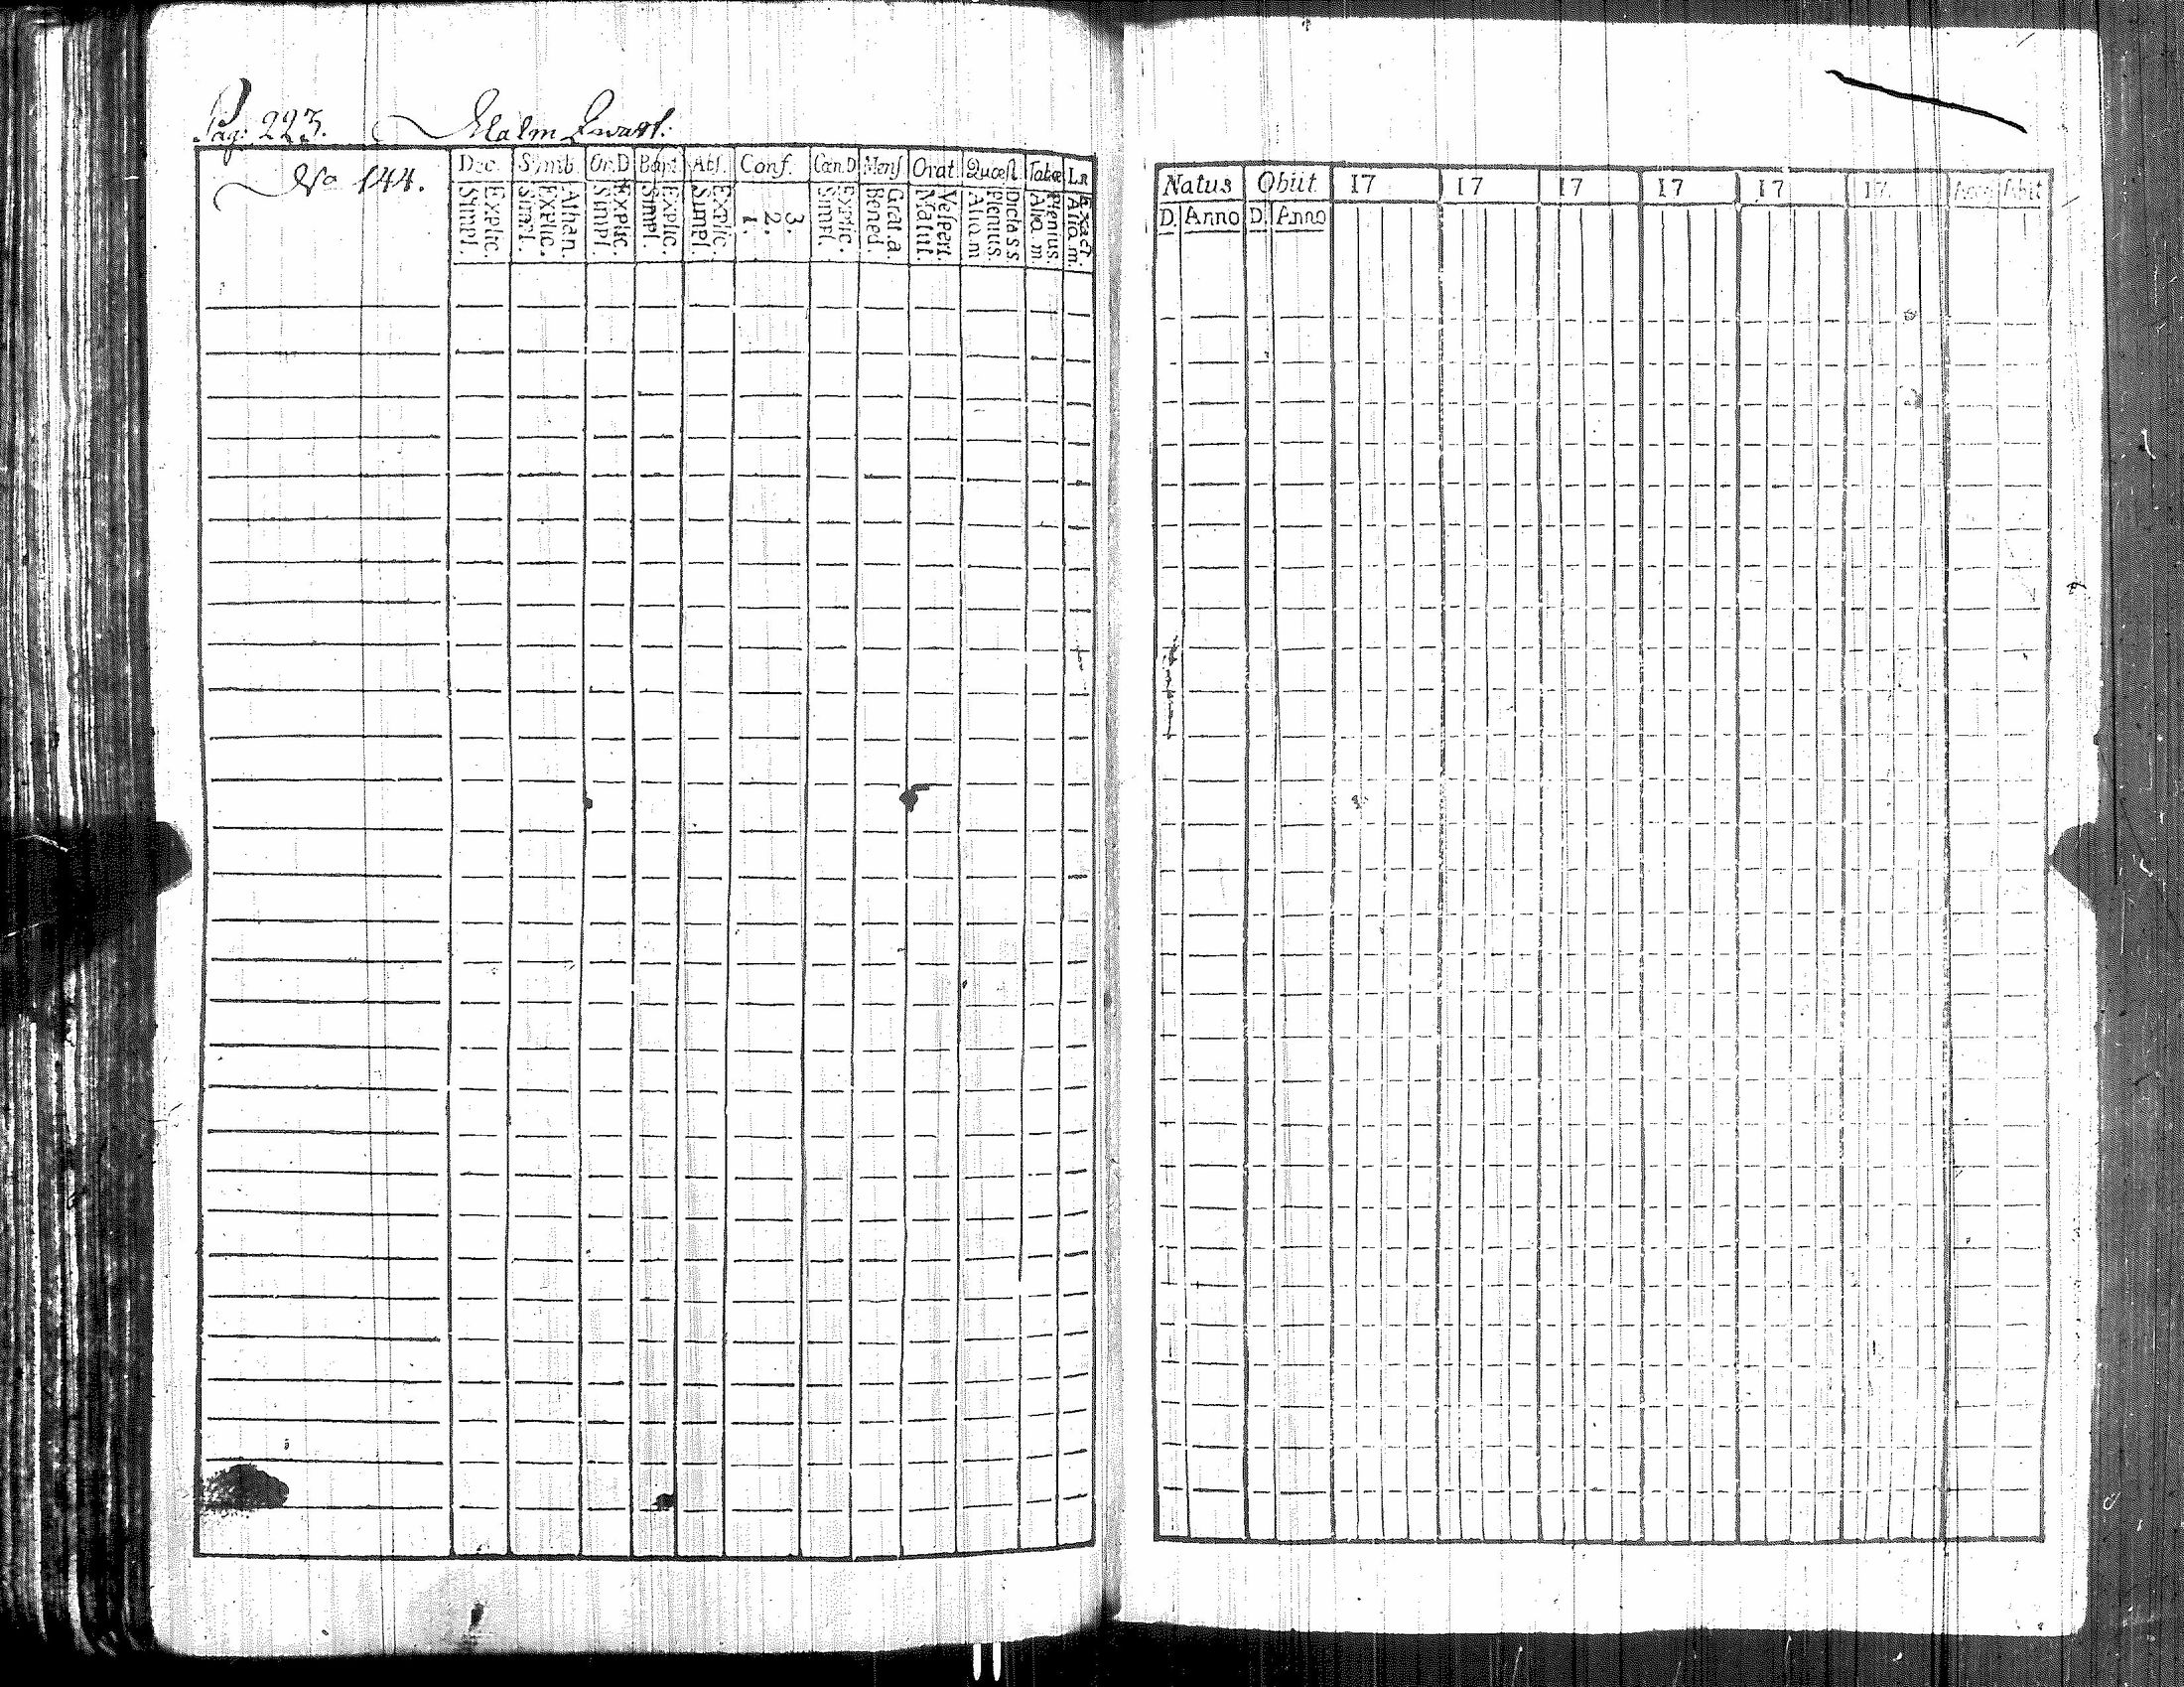 Pag: 223. Malm Qwart:
No 144.
Dec. Simb. Or.D Bapt. Abs. Conf. Cœn.D Mens. Orat. Quæst. Tabæ
Explic. Simpl.
Athan. Explic. Simpl.
Explic. Simpl.
Explic. Simpl.
Explic. Simpl.
3. 2. 1.
Explic. Simpl.
Grat.a. Bened.
Vespert. Matut.
Dicta s s. Plenius. Alio m
Plenius. Alio m
Exact. Alio m.
Natus Obiit 17 17 17 17 17 17 Abit
D. Anno D. Anno